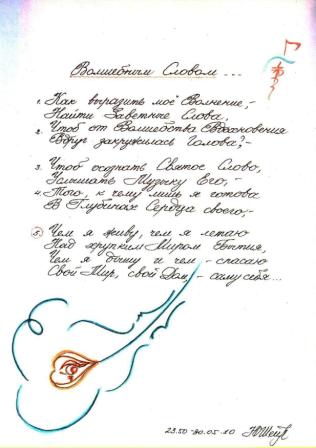 Волшебным Словом...
1. Как выразить моё Волнение,-
Найти Заветные Слова,
2. Чтоб от Волшебства Вдохновения
Вдруг закружилась Голова?-
3. Чтоб осознать Святое Слово,
Услышать Музыку Его,-
4. Того, к чему лишь я готова
В Глубинах Сердца своего,-
5. Чем я живу, чем я летаю
Над хрупким Миром Бытия,
Чем я дышу и чем - спасаю
Свой Мир, свой Дом, - саму себя...
23.50 - 30.05.10